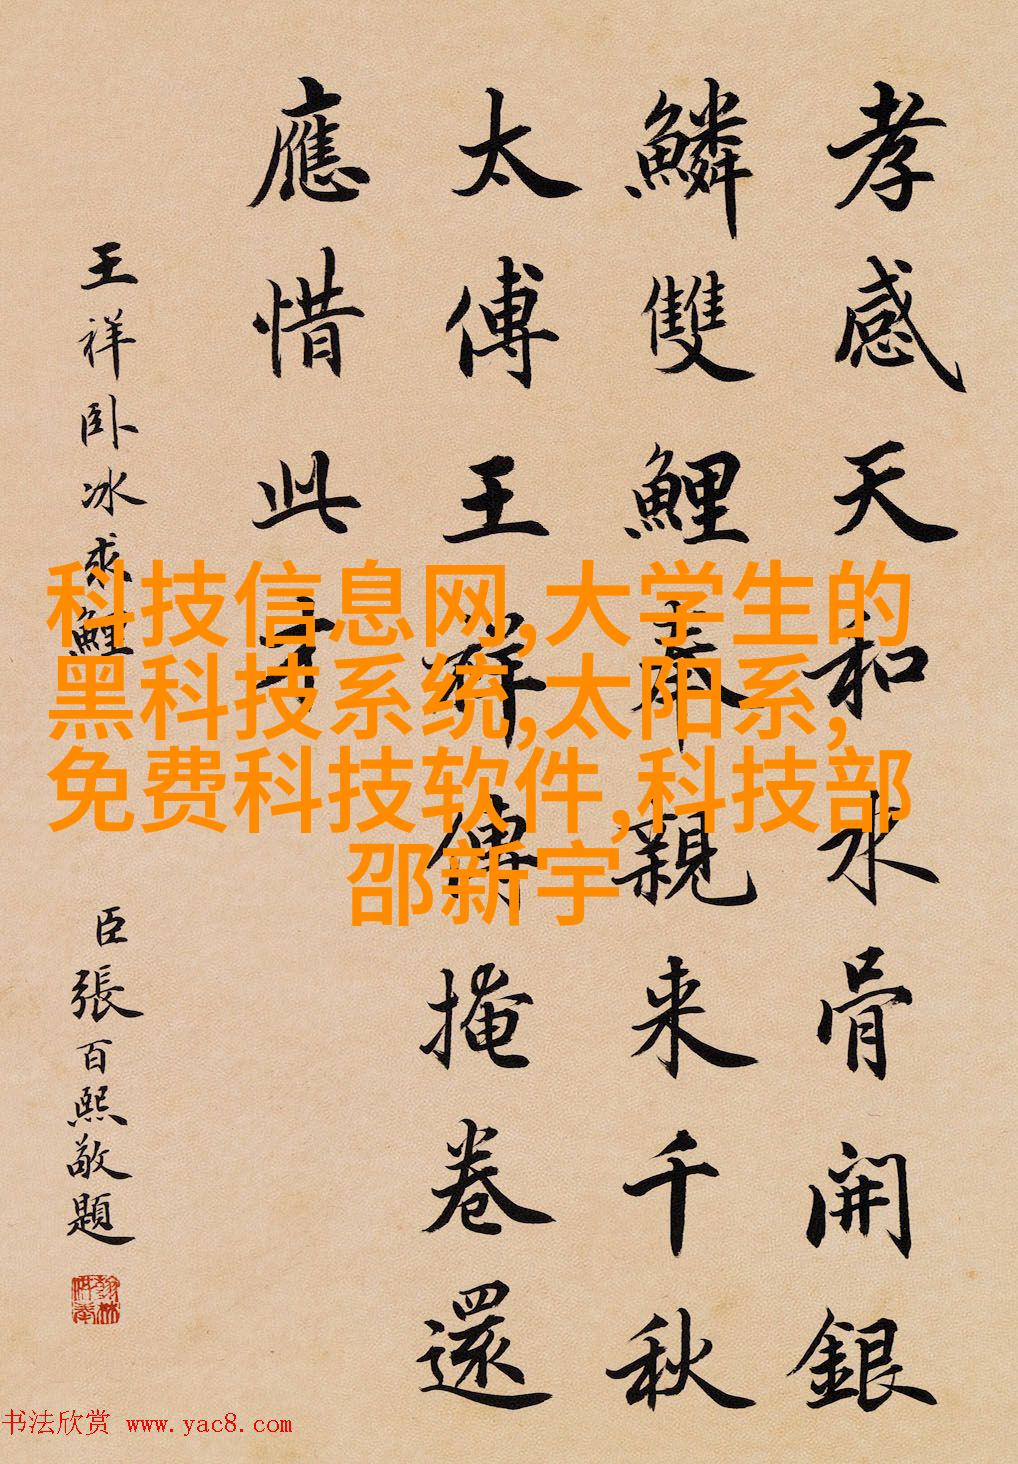 孝感天和水骨開銀
鱗雙鯉奉親来千秋
太傅王祥傳掩卷還
應惜此身
王祥卧冰求鯉
臣張百熙敬題
科技信息网,大学生的
黑科技系统,太阳系,
免费科技软件,科技部
邵新宇
书法欣赏 www.yac8.com